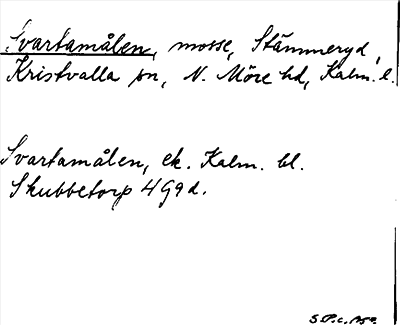 Svartamålen, mosse, Stämmeryd,
Kristvalla sn, N. Möre hd, Kalm. l.
Svartamålen, ek. Kalm. bl.
Skubbetorp 4 G 9 d.